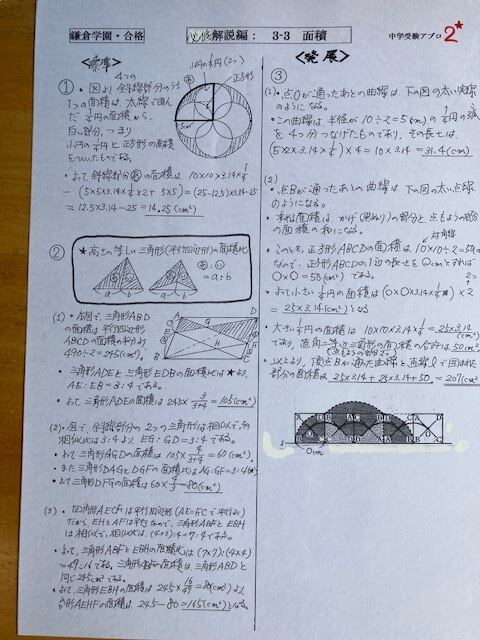 鎌倉学園・合格
必修解説編： 3-3 面積
中学受験アプロ 2★
<標準>
小円の1/4円(2つ)
正方形
あ
① ・図より斜線部分のうち
4つの
1つの面積は、太線で囲ん
だ1/4円の面積から、
白い部分、つまり
小円の1/4円と正方形の面積
をひいたものである。
・よって斜線部分あの面積は 10×10×3.14×1/4
－(5×5×3.14×1/4×2 + 5×5)=(25-12.5)×3.14-25
=12.5×3.14-25 = 14.25(cm²)
② ★高さの等しい三角形(平行四辺形)の面積比
あ:い
=a:b
(1)・右図で、三角形ABD
の面積は平行四辺形
ABCDの面積の半分より
490÷2=245(cm²)。
・三角形ADEと三角形EDBの面積比は★より、
AE:EB=3:4である。
・よって三角形ADEの面積は 245×3/(3+4)=105(cm²)
(2)・図で、斜線部分の2つの三角形は相似で、その
相似比は3:4より、EG:GD=3:4である。
・よって三角形AGDの面積は 105×4/(3+4)=60(cm²)
・また三角形DAGとDGFの面積比はAG:GF=3:4
・よって三角形DFGの面積は 60×4/3=80(cm²)
(3)・四角形AECFは平行四辺形(AE=FCで平行より)
だから、EHとAFは平行なので、三角形ABFとEBH
は相似で、相似比は、(4+3):4=7:4である。
・よって、三角形ABFとEBHの面積比は(7×7):(4×4)
=49:16である。三角形ABFの面積は、三角形ABDと
同じ245cm²である。
・よって、三角形EBHの面積は 245×16/49=80(cm²)より、
台形AEHFの面積は、245-80=165(cm²)となる。
<発展>
③
(1)・点Oが通ったあとの曲線は下の図の太い実線
のようになる。
・この曲線は半径が10÷2=5(cm)の1/4円の弧
を4つ分つなげたものであり、その長さは、
(5×2×3.14×1/4)×4=10×3.14=31.4(cm)
(2)
・点Bが通ったあとの曲線は下の図の太い点線
のようになる。
・求める面積は、かげ(黒ぬり)の部分と点もようの部分
の面積の和になる。
対角線
・このとき、正方形ABCDの面積は10×10÷2=50
なので、正方形ABCDの1辺の長さを○cmとすれば
○×○=50(cm²)である。
・よって小さい1/4円の面積は(○×○×3.14×1/4)×2
2つ
=25×3.14(cm²)となる
・大きい1/4円の面積は 10×10×3.14×1/4=25×3.14(cm²)
であり、直角二等辺三角形の面積の合計は50cm²
(点もようの部分2つ)
・以上より、頂点Bが通った曲線と直線ℓで囲まれた
部分の面積は、25×3.14+25×3.14+50=207(cm²)
A D B A C B D C A D
B C C D D A A B B C
O
○cm